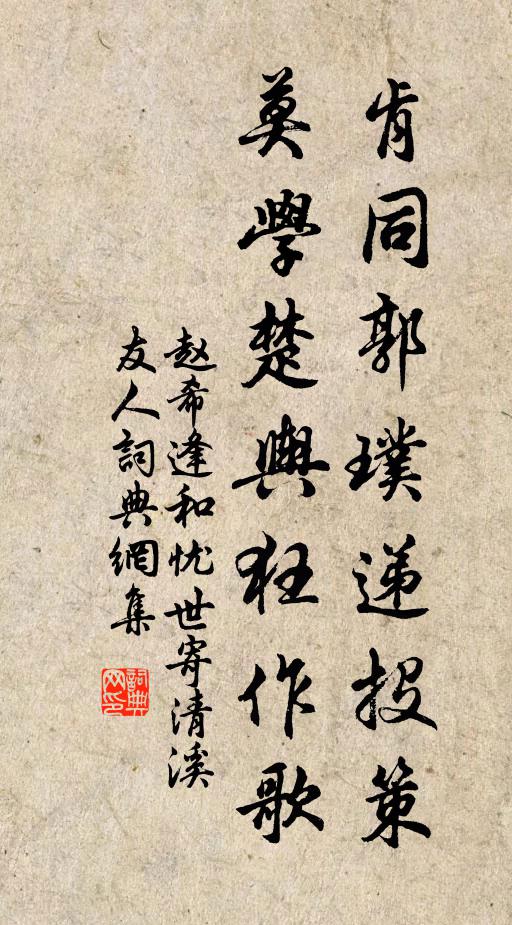 肯同郭璞递投策
莫學楚輿狂作歌
赵希逢和忧世寄清溪
友人詞典網集
詞典网印